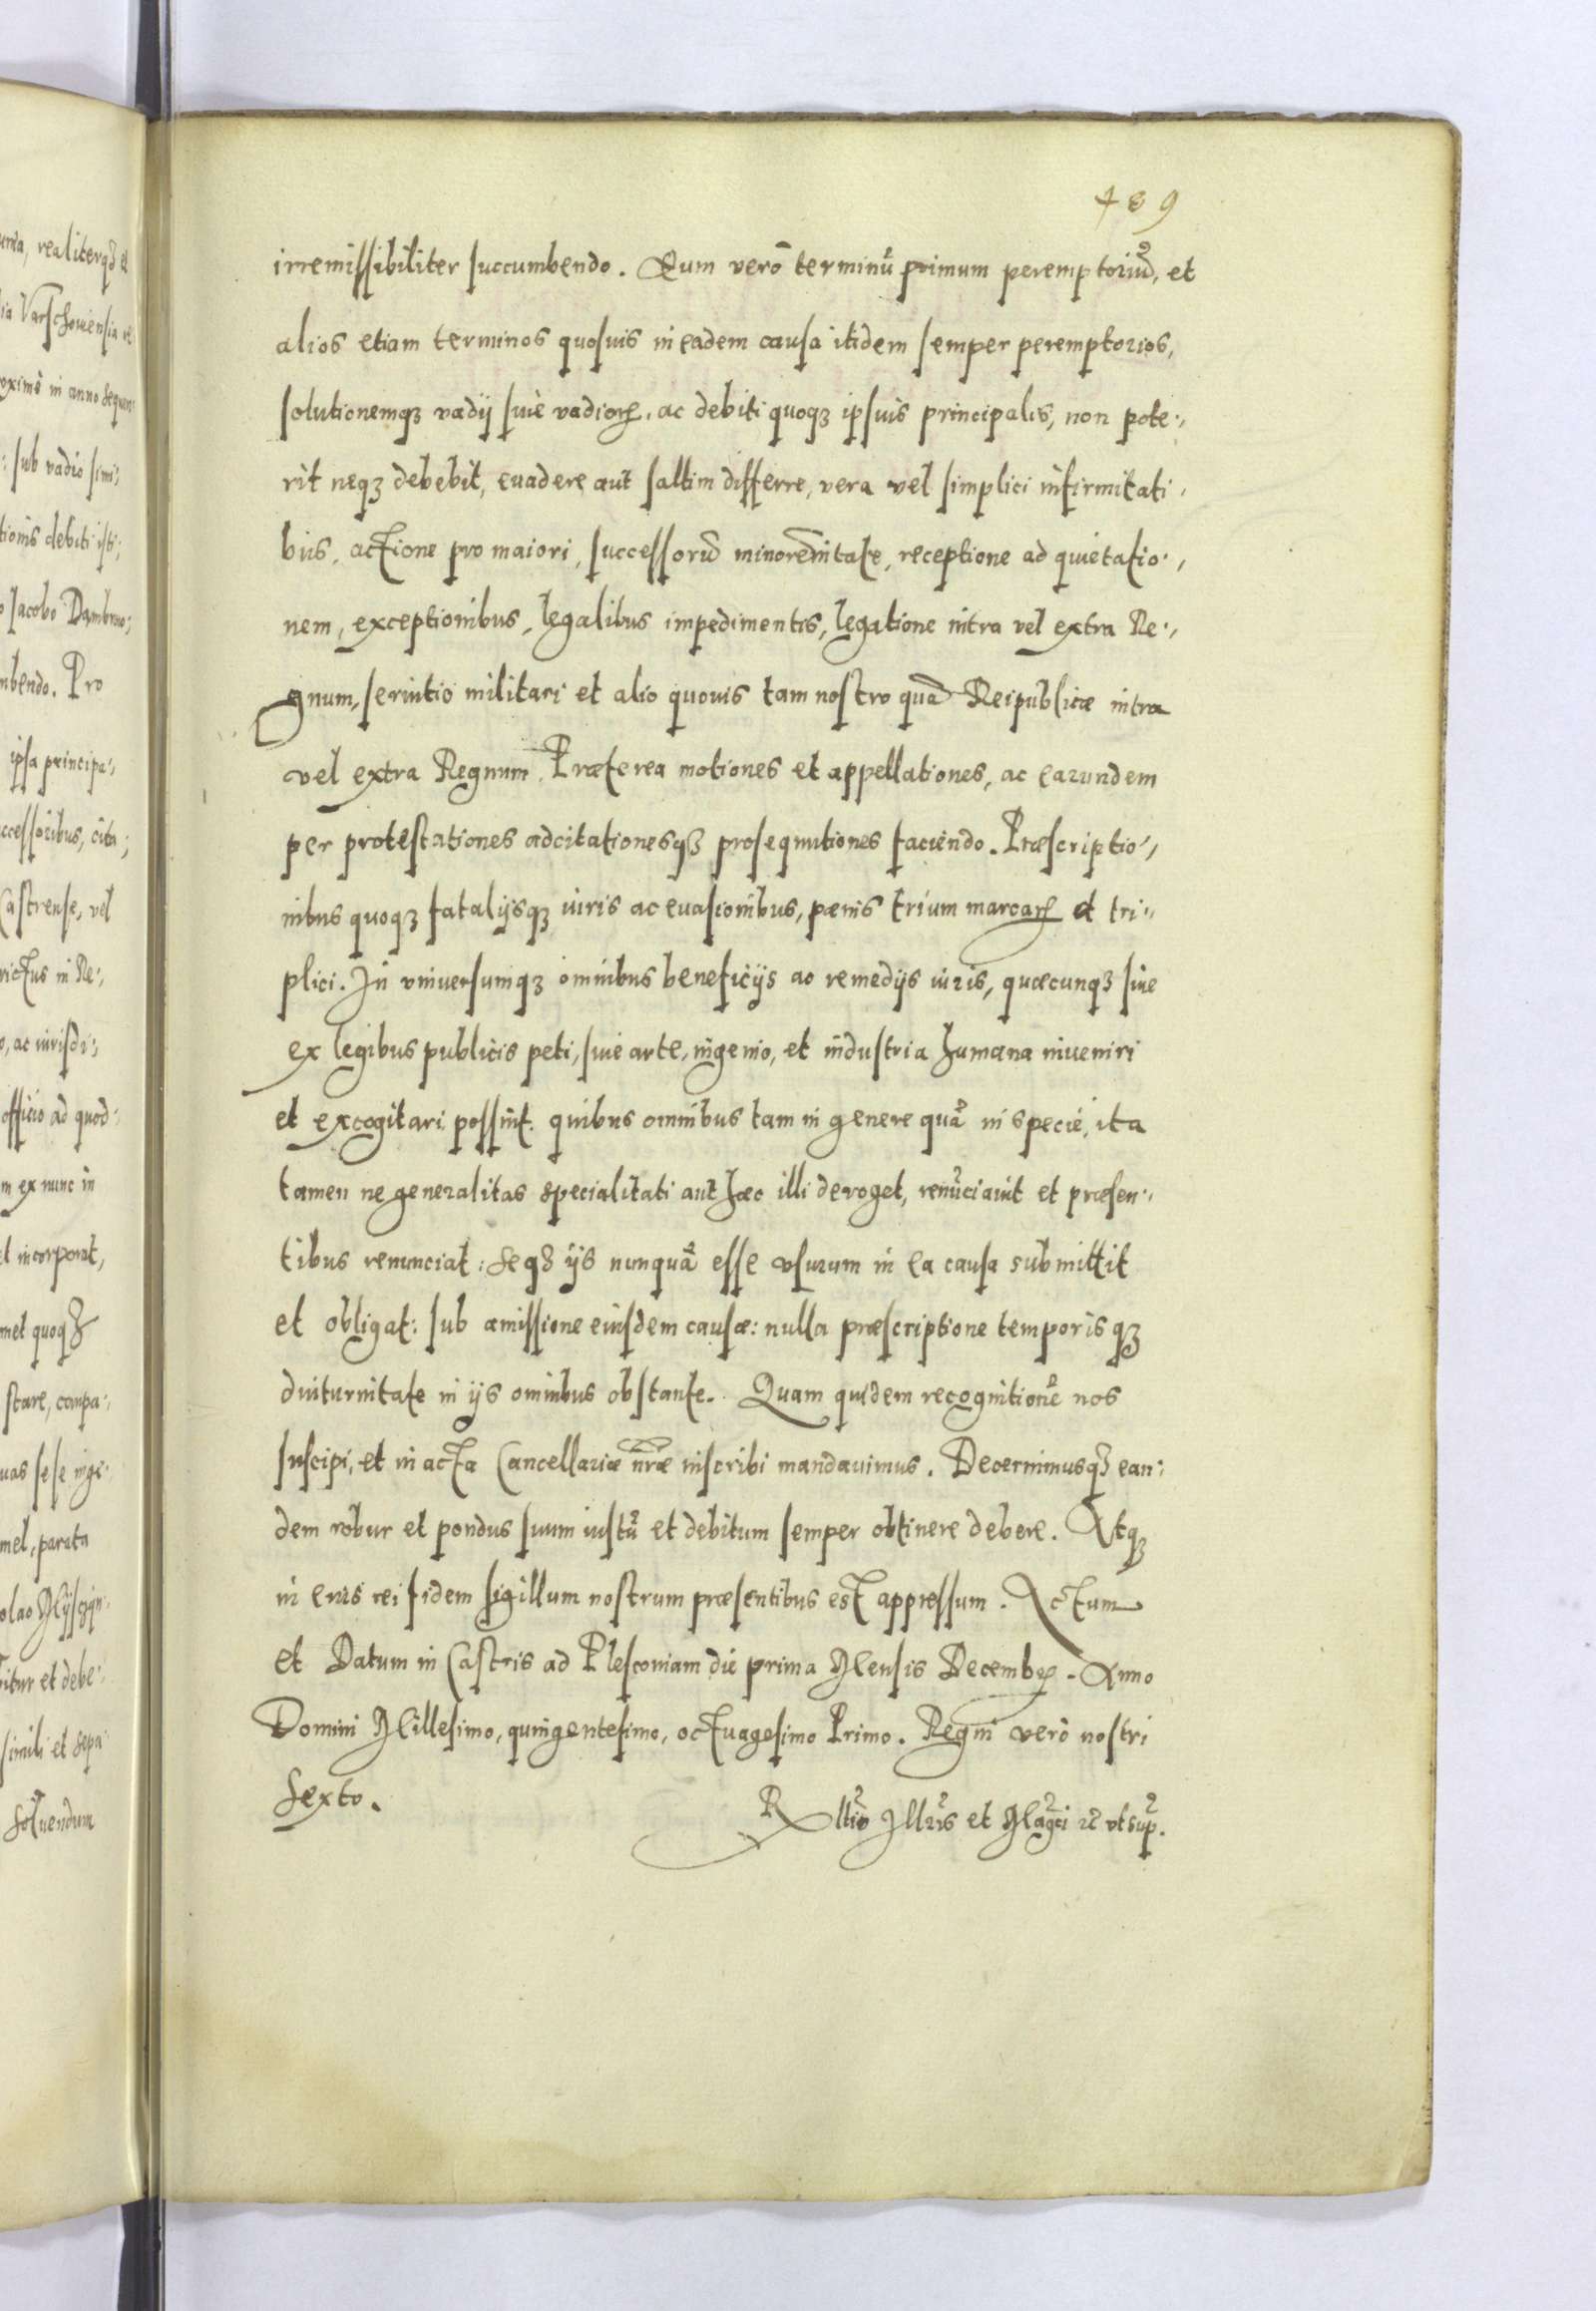 489
irremissibiliter succumbendo. Eum verò terminũ primum peremptoriũ, et
alios etiam terminos quosuis in eadem causa itidem semper peremptorios,
solutionemqꝫ vadij siue vadiorꝝ, ac debiti quoqꝫ ipsius principalis, non pote-
rit neqꝫ debebit, euadere aut saltim differre, vera vel simplici infirmitati-
bus, actione pro maiori, successorũ minorennitate, receptione ad quietatio-
nem, exceptionibus, legalibus impedimentis, legatione intra vel extra Re-
gnum, seruitio militari et alio quouis tam nostro quã Reipublicæ intra
vel extra Regnum. Præterea motiones et appellationes, ac earundem
per protestationes adcitationesqꝫ prosequutiones faciendo. Præscriptio-
nibus quoqꝫ fatalijsqꝫ iuris ac euasionibus, pænis trium marcarꝝ et tri-
plici. In vniuersumqꝫ omnibus beneficijs ac remedijs iuris, quæcunqꝫ siue
ex legibus publicis peti, siue arte, ingenio, et industria humana inueniri
et excogitari possint. quibus omnibus tam in genere quã in specie, ita
tamen ne generalitas specialitati aut hæc illi deroget, renũciauit et præsen-
tibus renunciat: seqꝫ ijs nunquã esse vsurum in ea causa submittit
et obligat: sub amissione eiusdem causæ: nulla præscriptione temporisqꝫ
diuturnitate in ijs omnibus obstante. Quam quidem recognitionẽ nos
suscipi, et in acta Cancellariæ nr̃æ inscribi mandauimus. Decernimusqꝫ ean-
dem robur et pondus suum iustũ et debitum semper obtinere debere. Atqꝫ
in eius rei fidem sigillum nostrum præsentibus est appressum. Actum
et Datum in Castris ad Plesconiam die prima Mensis Decembrꝭ. Anno
Domini Millesimo, quingentesimo, octuagesimo Primo. Regni verò nostri
Sexto.
Rltio Illris et Magci ꝛc̃ vt sup.
realiterqꝫ et
Varschouiensia
in anno sequen
sub vadio simi-
debiti isti-
Iacobo Dambrow-
Pro
ipsa principa-
cita-
Castrense, vel
in Re-
ac iurisdi-
officio ad quod
ex nunc in
incorporat,
quoqꝫ
stare, compa-
sese
parata
et debe-
simili et sepa
soluendum